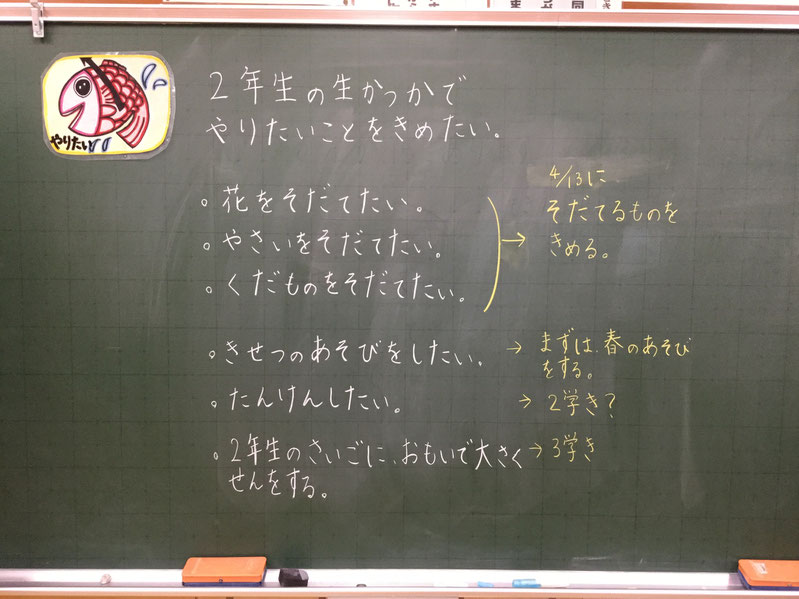 やりたい
2年生の生かつかで
やりたいことをきめたい。
。花をそだてたい。
。やさいをそだてたい。
。くだものをそだてたい。
→
4/13に
そだてるものを
きめる。
。きせつのあそびをしたい。
→まずは、春のあそび
をする。
。たんけんしたい。
→2学き?
。2年生のさいごに、おもいで大さく
せんをする。
→3学き